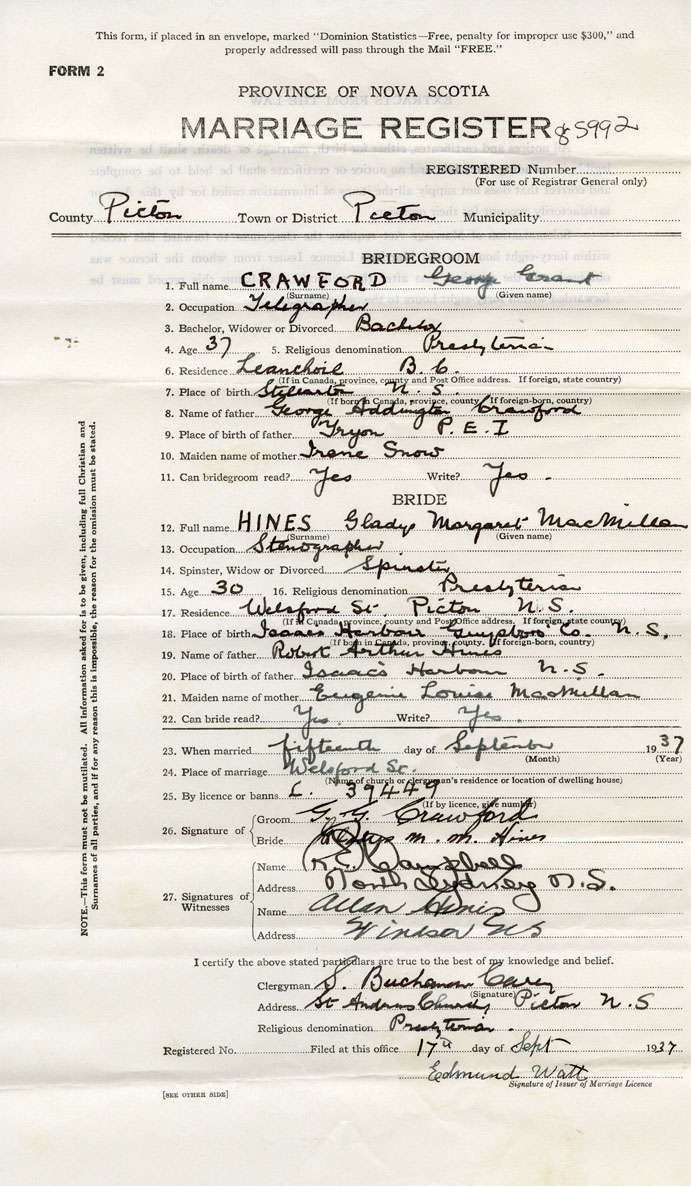 This form, if placed in an envelope, marked "Dominion Statistics—Free, penalty for improper use $300," and
properly addressed will pass through the Mail "FREE."
FORM 2
PROVINCE OF NOVA SCOTIA
MARRIAGE REGISTER 85992
REGISTERED Number
(For use of Registrar General only)
County Pictou Town or District Pictou Municipality
BRIDEGROOM
1. Full name CRAWFORD George Grant
(Surname) (Given name)
2. Occupation Telegrapher
3. Bachelor, Widower or Divorced Bachelor
4. Age 37 5. Religious denomination Presbyterian
6. Residence Leanchoil B.C.
(If in Canada, province, county and Post Office address. If foreign, state country)
7. Place of birth Stellarton N.S.
(If born in Canada, province, county. If foreign-born, country)
8. Name of father George Addington Crawford
9. Place of birth of father Tryon P.E.I
10. Maiden name of mother Irene Snow
11. Can bridegroom read? Yes Write? Yes.
BRIDE
12. Full name HINES Gladys Margaret MacMillan
(Surname) (Given name)
13. Occupation Stenographer
14. Spinster, Widow or Divorced Spinster
15. Age 30 16. Religious denomination Presbyterian
17. Residence Welsford St. Pictou N.S.
(If in Canada, province, county and Post Office address. If foreign, state country)
18. Place of birth Isaacs Harbour Guysboro Co. N.S.
(If born in Canada, province, county. If foreign-born, country)
19. Name of father Robert Arthur Hines
20. Place of birth of father Isaac's Harbour N.S.
21. Maiden name of mother Eugenie Louise MacMillan
22. Can bride read? Yes. Write? Yes.
23. When married fifteenth day of September 1937
(Month) (Year)
24. Place of marriage Welsford St.
(Name of church or clergyman's residence or location of dwelling house)
25. By licence or banns L. 39449
(If by licence, give number)
26. Signature of Groom G. G. Crawford
Bride Gladys M. M. Hines
27. Signatures of Witnesses
Name Campbell
Address North Sydney N.S.
Name Allan Hines
Address Windsor NS
I certify the above stated particulars are true to the best of my knowledge and belief.
Clergyman Buchanan Carey
(Signature)
Address St Andrews Church, Pictou N.S
Religious denomination Presbyterian.
Registered No. Filed at this office 17th day of Sept 1937
Edmund Watt
Signature of Issuer of Marriage Licence
[SEE OTHER SIDE]
NOTE.—This form must not be mutilated. All information asked for is to be given, including full Christian and
Surnames of all parties, and if for any reason this is impossible, the reason for the omission must be stated.